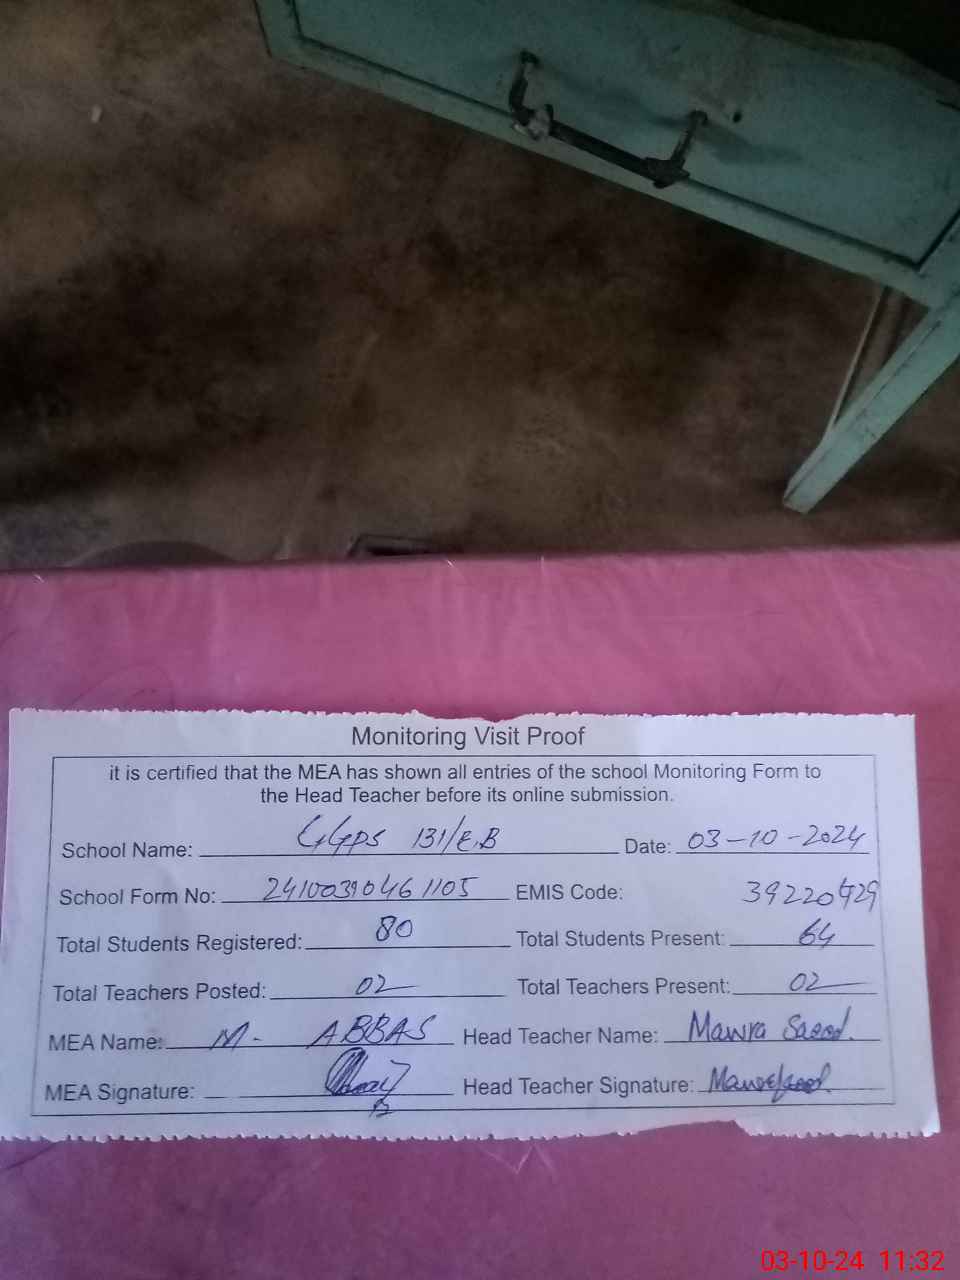 Monitoring Visit Proof
it is certified that the MEA has shown all entries of the school Monitoring Form to
the Head Teacher before its online submission.
School Name: GGPS 131/E.B Date: 03-10-2024
School Form No: 24100390461105 EMIS Code: 39220429
Total Students Registered: 80 Total Students Present: 64
Total Teachers Posted: 02 Total Teachers Present: 02
MEA Name: M. ABBAS Head Teacher Name: Mawra Saeed.
MEA Signature: Head Teacher Signature:
03-10-24 11:32